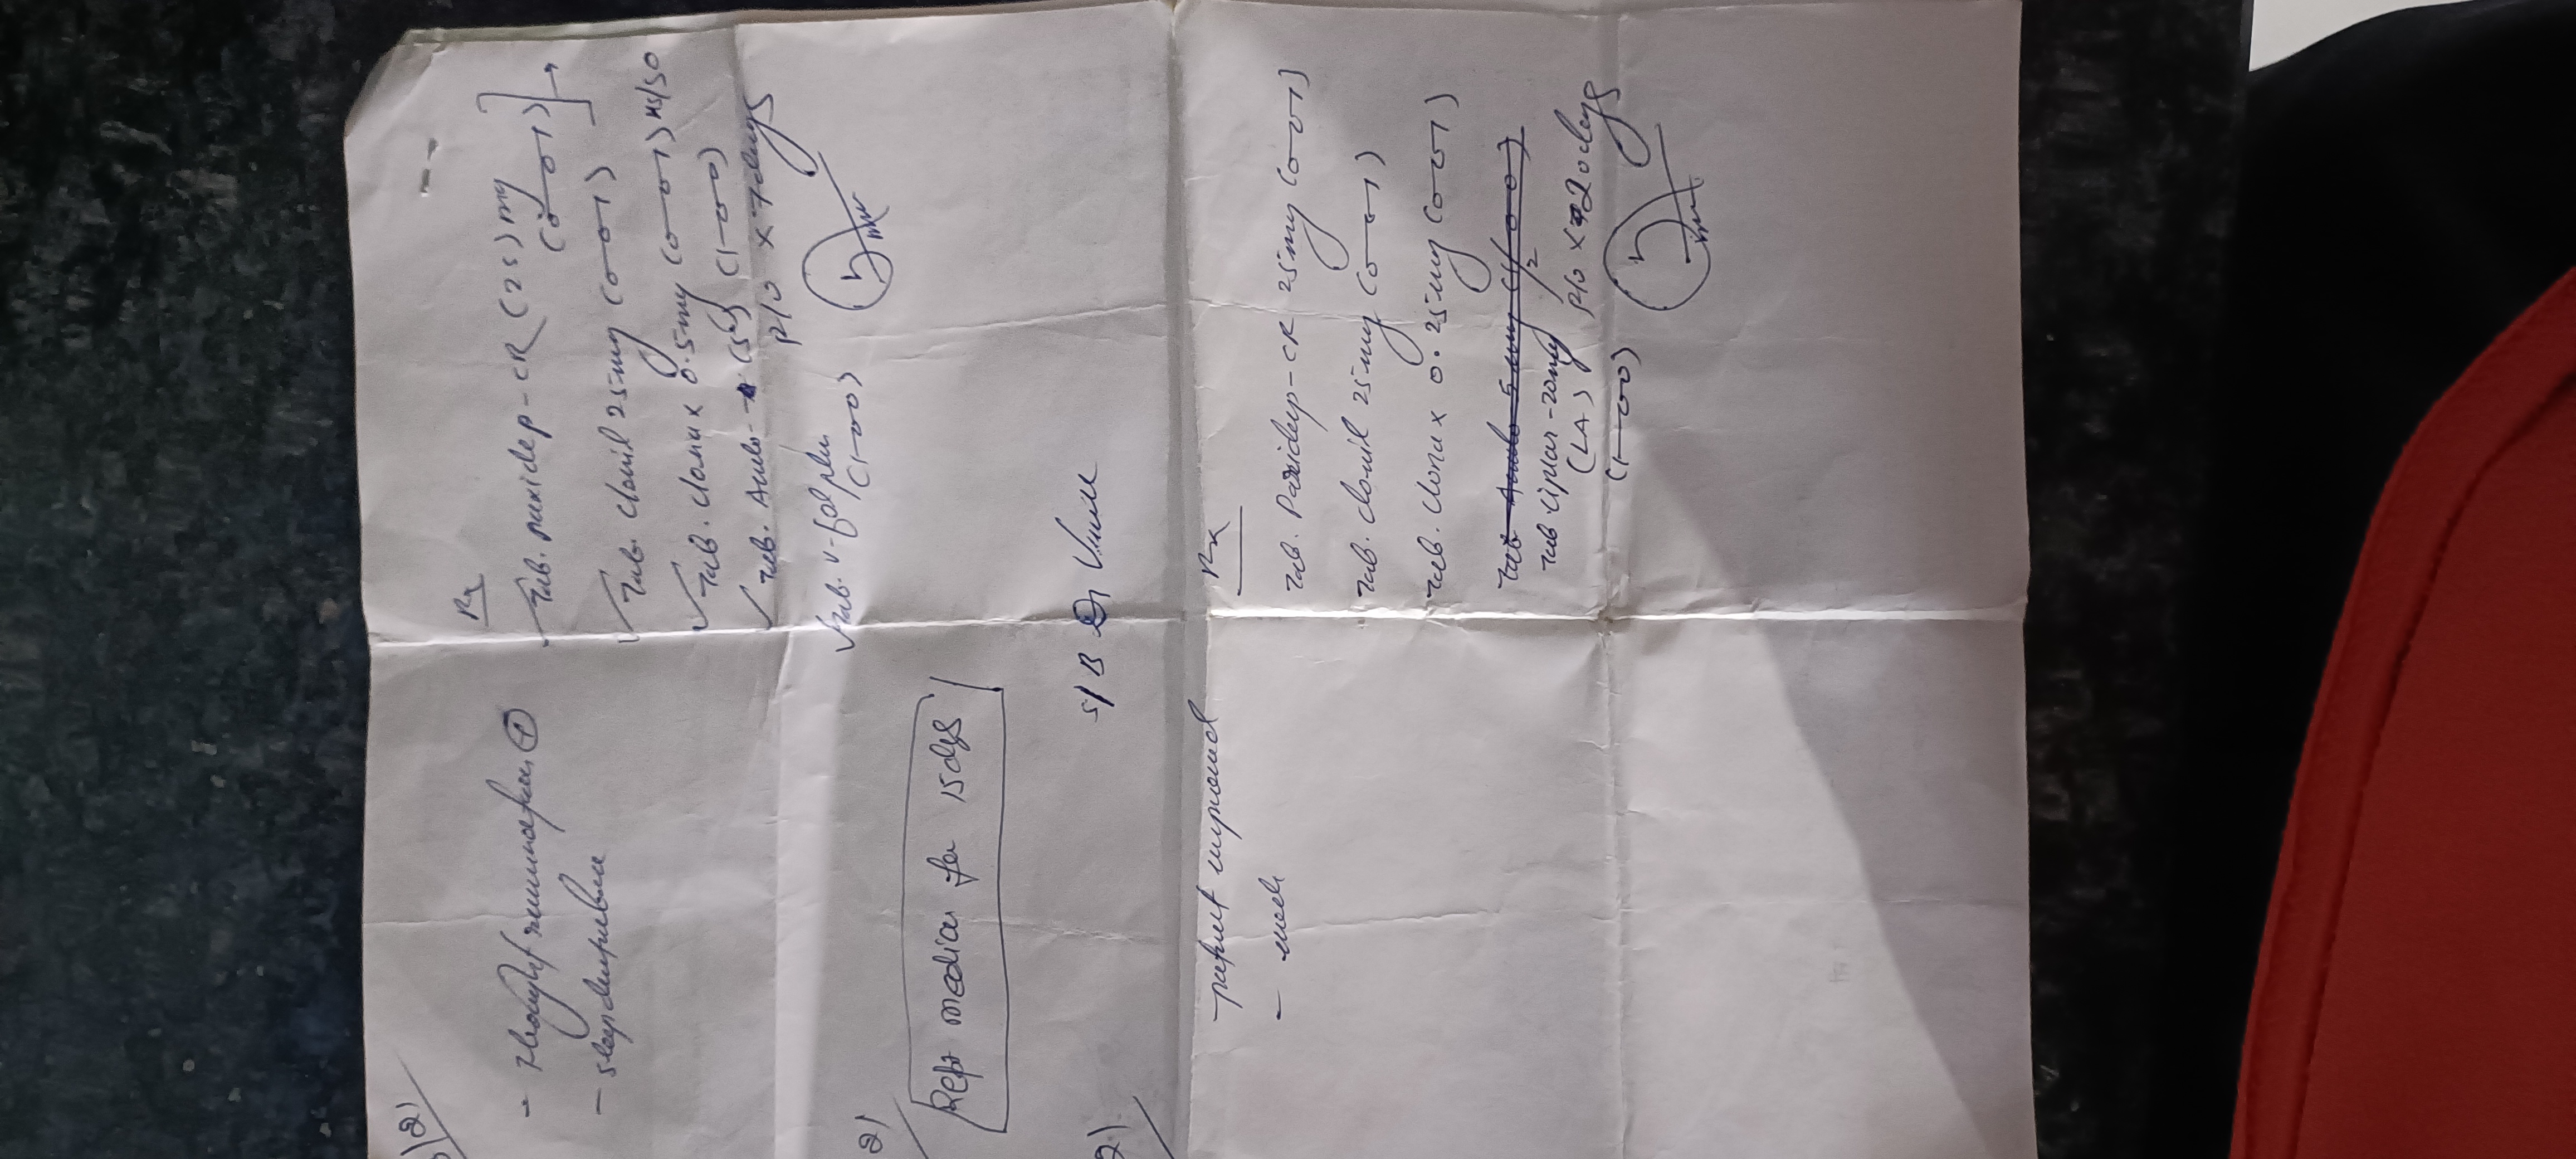 2)
Rx
- thought rumination ⊕
- sleep disturbance
✓ Tab. paxidep-CR (25) mg
(0—0—1)
✓ Tab. clonil 25mg (0—0—1)
✓ Tab. clonax 0.5mg (0—0—1) HS/SO
✓ Tab. Amlo- (5) (1—0—0)
P/O x 7 days
✓ Tab. v-fol plus
(1—0—0)
2)
Rept medicar for 15 days
S/B Dr
2)
patient improved
-
Rx
Tab. Paxidep-CR 25mg (0—0—1)
Tab. clonil 25mg (0—0—1)
Tab. clonax 0.25mg (0—0—1)
Tab Amlo 5mg (1/2—0—0)
Tab ciplar-20mg
(LA)
(1—0—0)
P/O x 20 days